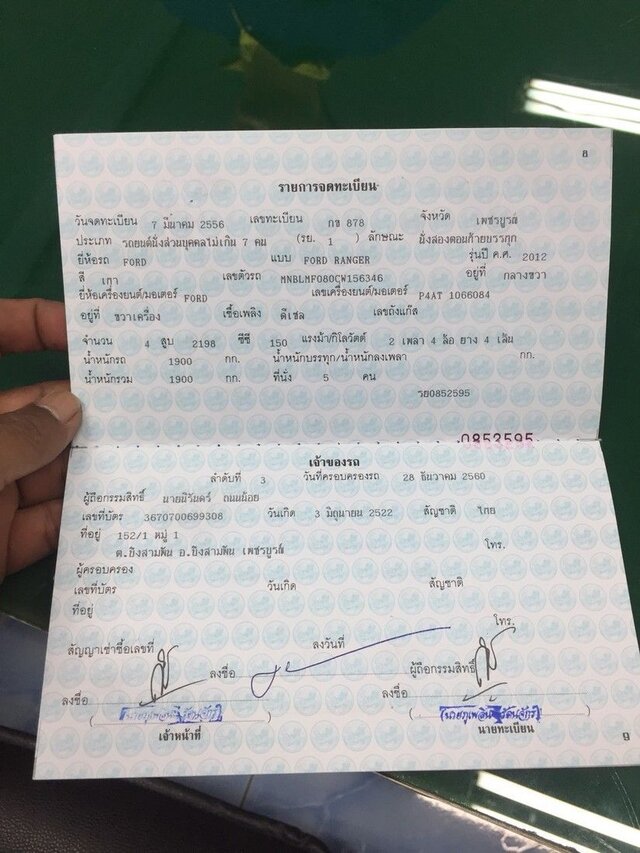 ๘
รายการจดทะเบียน
วันจดทะเบียน 7 มีนาคม 2556 เลขทะเบียน กข 878 จังหวัด เพชรบูรณ์
ประเภท รถยนต์นั่งส่วนบุคคลไม่เกิน 7 คน (รย. 1 ) ลักษณะ นั่งสองตอนท้ายบรรทุก
ยี่ห้อรถ FORD แบบ FORD RANGER รุ่นปี ค.ศ. 2012
สี เทา เลขตัวรถ MNBLMF080CW156346 อยู่ที่ กลางขวา
ยี่ห้อเครื่องยนต์/มอเตอร์ FORD เลขเครื่องยนต์/มอเตอร์ P4AT 1066084
อยู่ที่ ขวาเครื่อง เชื้อเพลิง ดีเซล เลขถังแก๊ส
จำนวน 4 สูบ 2198 ซีซี 150 แรงม้า/กิโลวัตต์ 2 เพลา 4 ล้อ ยาง 4 เส้น
น้ำหนักรถ 1900 กก. น้ำหนักบรรทุก/น้ำหนักลงเพลา กก.
น้ำหนักรวม 1900 กก. ที่นั่ง 5 คน
รย0852595
0853595
เจ้าของรถ
ลำดับที่ 3 วันที่ครอบครองรถ 28 ธันวาคม 2560
ผู้ถือกรรมสิทธิ์ นายนิรันดร์ ถนนน้อย
เลขที่บัตร 3670700699308 วันเกิด 3 มิถุนายน 2522 สัญชาติ ไทย
ที่อยู่ 152/1 หมู่ 1
ต.บึงสามพัน อ.บึงสามพัน เพชรบูรณ์ โทร.
ผู้ครอบครอง
เลขที่บัตร วันเกิด สัญชาติ
ที่อยู่
โทร.
สัญญาเช่าซื้อเลขที่ ลงวันที่
ลงชื่อ ผู้ถือกรรมสิทธิ์
ลงชื่อ ลงชื่อ
( ) ( )
เจ้าหน้าที่ นายทะเบียน
๙